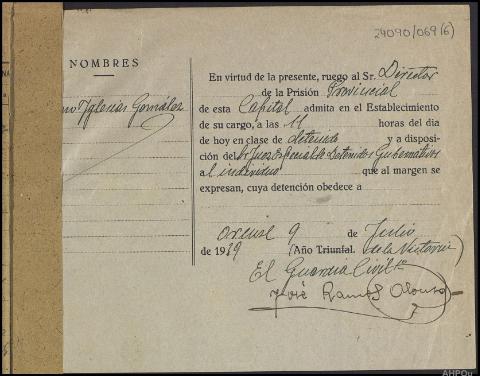 24090/069(6)
NOMBRES
Iglesias González
En virtud de la presente, ruego al Sr. Director
de la Prisión Provincial
de esta Capital admita en el Establecimiento
de su cargo, a las 11 horas del día
de hoy en clase de detenido y a disposi-
ción del Sr Juez Especial de Detenidos Gubernativos
al individuo que al margen se
expresan, cuya detención obedece a
Orense 9 de Julio
de 1939 (Año Triunfal. de la Victoria)
El Guardia Civil
José Ramos Alonso
AHPOu